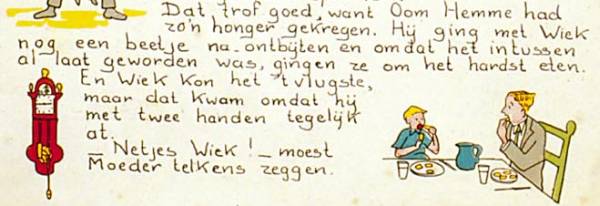 Dat trof goed, want Oom Hemme had
zo'n honger gekregen. Hij ging met Wiek
nog een beetje na-ontbijten en omdat het intussen
al laat geworden was, gingen ze om het hardst eten.
En Wiek kon het 't vlugste,
maar dat kwam omdat hij
met twee handen tegelijk
at.
— Netjes Wiek! — moest
Moeder telkens zeggen.